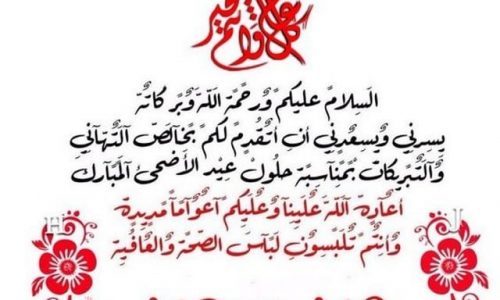 كل عام وانتم بخير
السلام عليكم ورحمة الله وبركاته
يسرني ويسعدني ان اتقدم لكم بخالص التهاني
والتبريكات بمناسبة حلول عيد الاضحى المبارك
اعاده الله علينا وعليكم اعواماً مديدة
وانتم تلبسون لباس الصحة والعافية
H
J